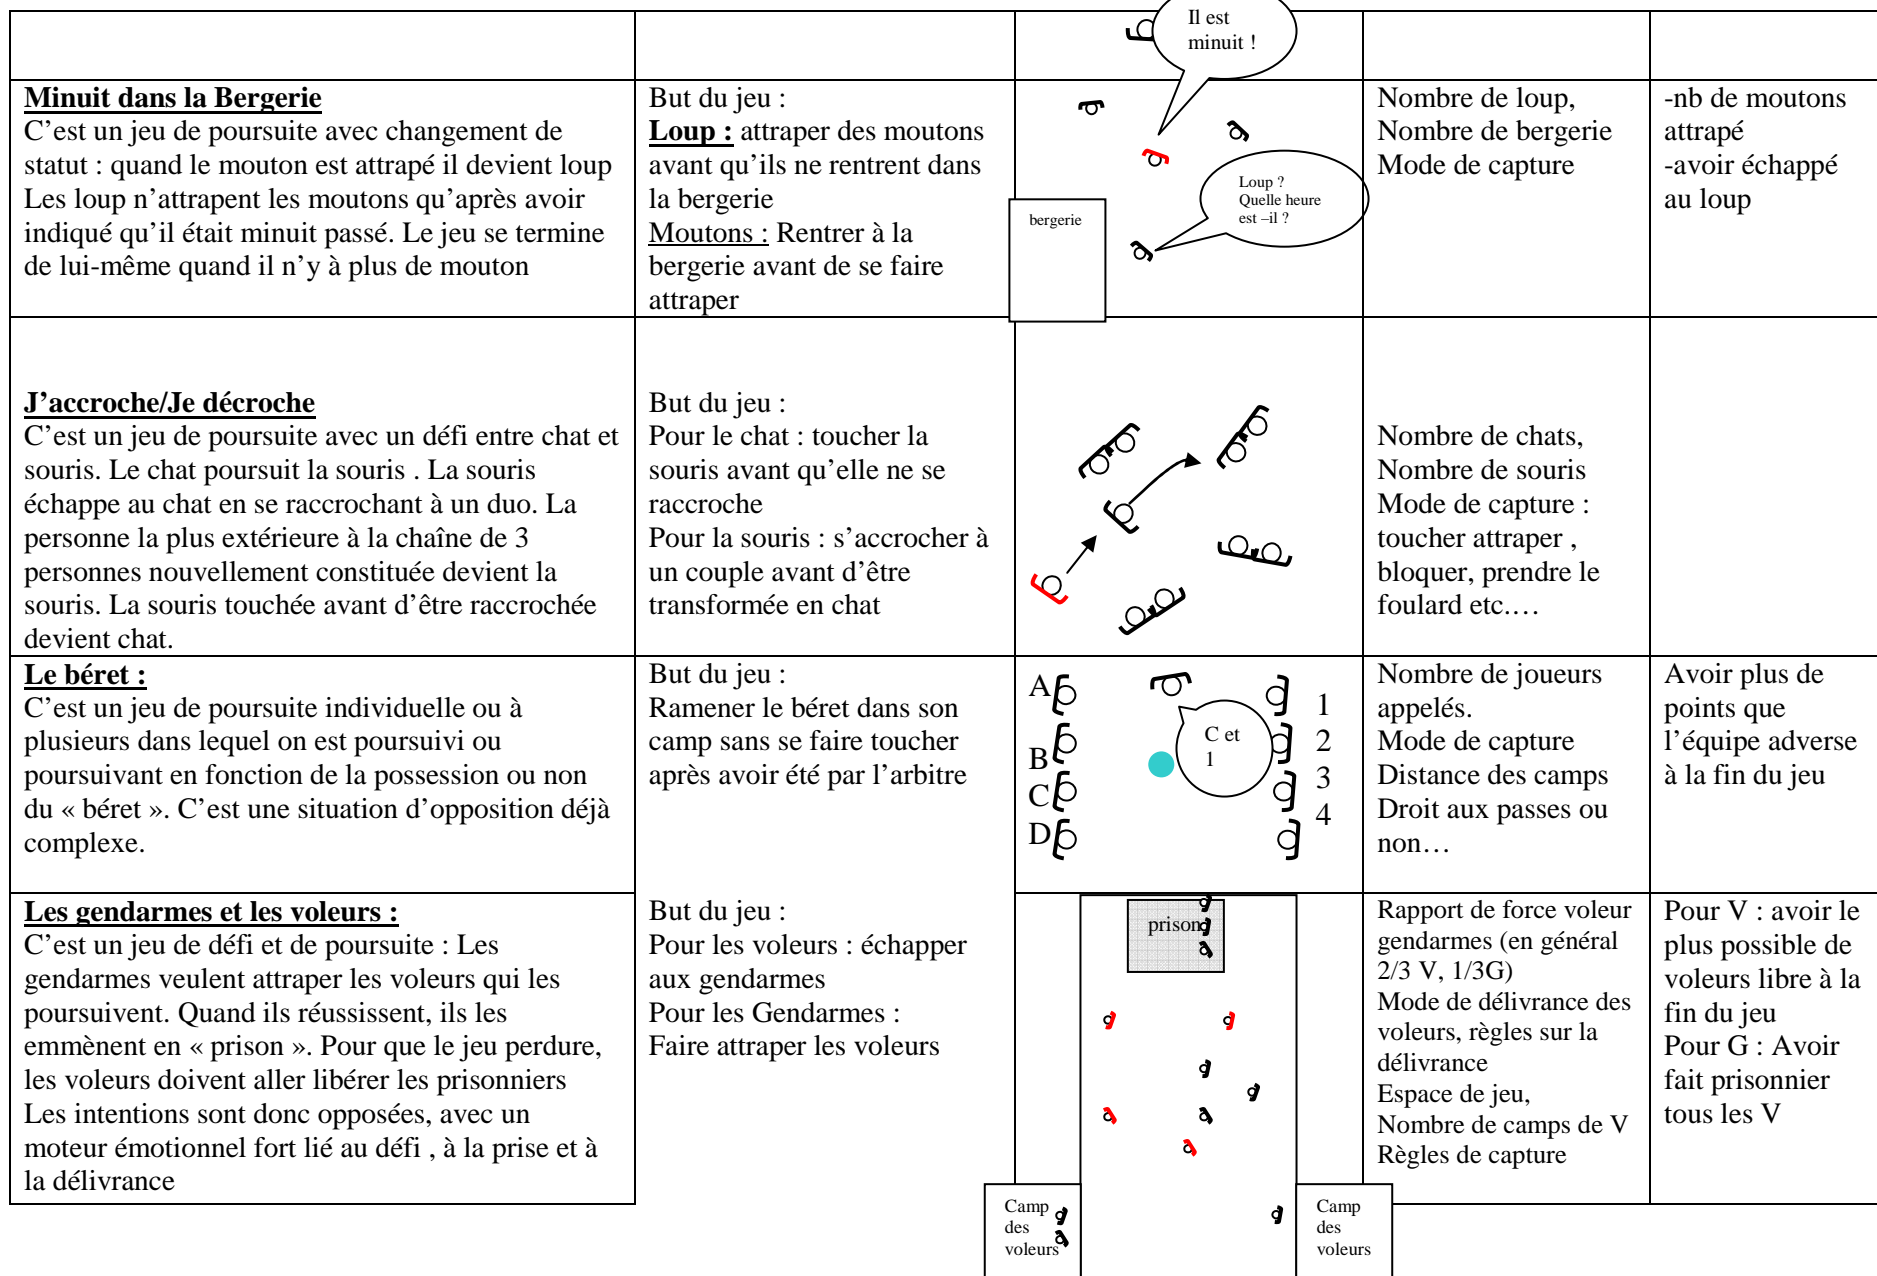 Il est
minuit !
Minuit dans la Bergerie
C’est un jeu de poursuite avec changement de
statut : quand le mouton est attrapé il devient loup
Les loup n’attrapent les moutons qu’après avoir
indiqué qu’il était minuit passé. Le jeu se termine
de lui-même quand il n’y à plus de mouton
But du jeu :
Loup : attraper des moutons
avant qu’ils ne rentrent dans
la bergerie
Moutons : Rentrer à la
bergerie avant de se faire
attraper
Loup ?
Quelle heure
est –il ?
bergerie
Nombre de loup,
Nombre de bergerie
Mode de capture
-nb de moutons
attrapé
-avoir échappé
au loup
J’accroche/Je décroche
C’est un jeu de poursuite avec un défi entre chat et
souris. Le chat poursuit la souris . La souris
échappe au chat en se raccrochant à un duo. La
personne la plus extérieure à la chaîne de 3
personnes nouvellement constituée devient la
souris. La souris touchée avant d’être raccrochée
devient chat.
But du jeu :
Pour le chat : toucher la
souris avant qu’elle ne se
raccroche
Pour la souris : s’accrocher à
un couple avant d’être
transformée en chat
Nombre de chats,
Nombre de souris
Mode de capture :
toucher attraper ,
bloquer, prendre le
foulard etc.…
Le béret :
C’est un jeu de poursuite individuelle ou à
plusieurs dans lequel on est poursuivi ou
poursuivant en fonction de la possession ou non
du « béret ». C’est une situation d’opposition déjà
complexe.
But du jeu :
Ramener le béret dans son
camp sans se faire toucher
après avoir été par l’arbitre
A
B
C
D
C et
1
1
2
3
4
Nombre de joueurs
appelés.
Mode de capture
Distance des camps
Droit aux passes ou
non…
Avoir plus de
points que
l’équipe adverse
à la fin du jeu
Les gendarmes et les voleurs :
C’est un jeu de défi et de poursuite : Les
gendarmes veulent attraper les voleurs qui les
poursuivent. Quand ils réussissent, ils les
emmènent en « prison ». Pour que le jeu perdure,
les voleurs doivent aller libérer les prisonniers
Les intentions sont donc opposées, avec un
moteur émotionnel fort lié au défi , à la prise et à
la délivrance
But du jeu :
Pour les voleurs : échapper
aux gendarmes
Pour les Gendarmes :
Faire attraper les voleurs
prison
Camp
des
voleurs
Camp
des
voleurs
Rapport de force voleur
gendarmes (en général
2/3 V, 1/3G)
Mode de délivrance des
voleurs, règles sur la
délivrance
Espace de jeu,
Nombre de camps de V
Règles de capture
Pour V : avoir le
plus possible de
voleurs libre à la
fin du jeu
Pour G : Avoir
fait prisonnier
tous les V